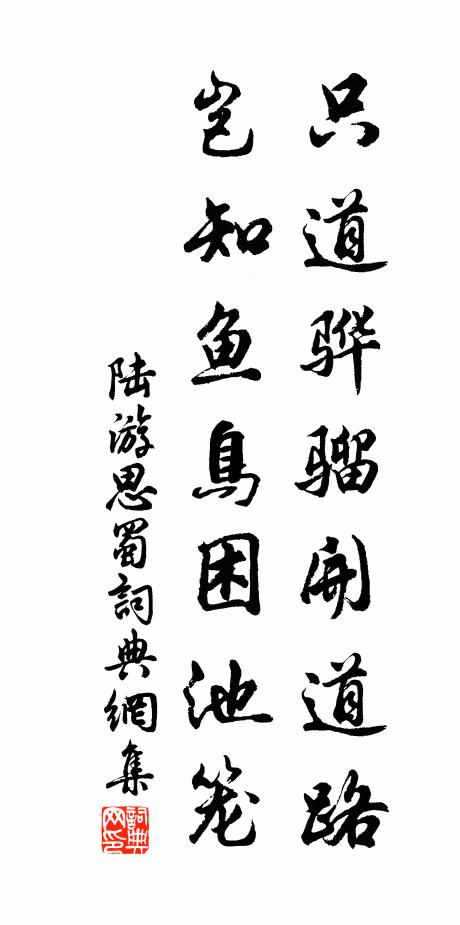 只道骅骝开道路
岂知鱼鸟困池笼
陆游思蜀詞典網集
詞典网印